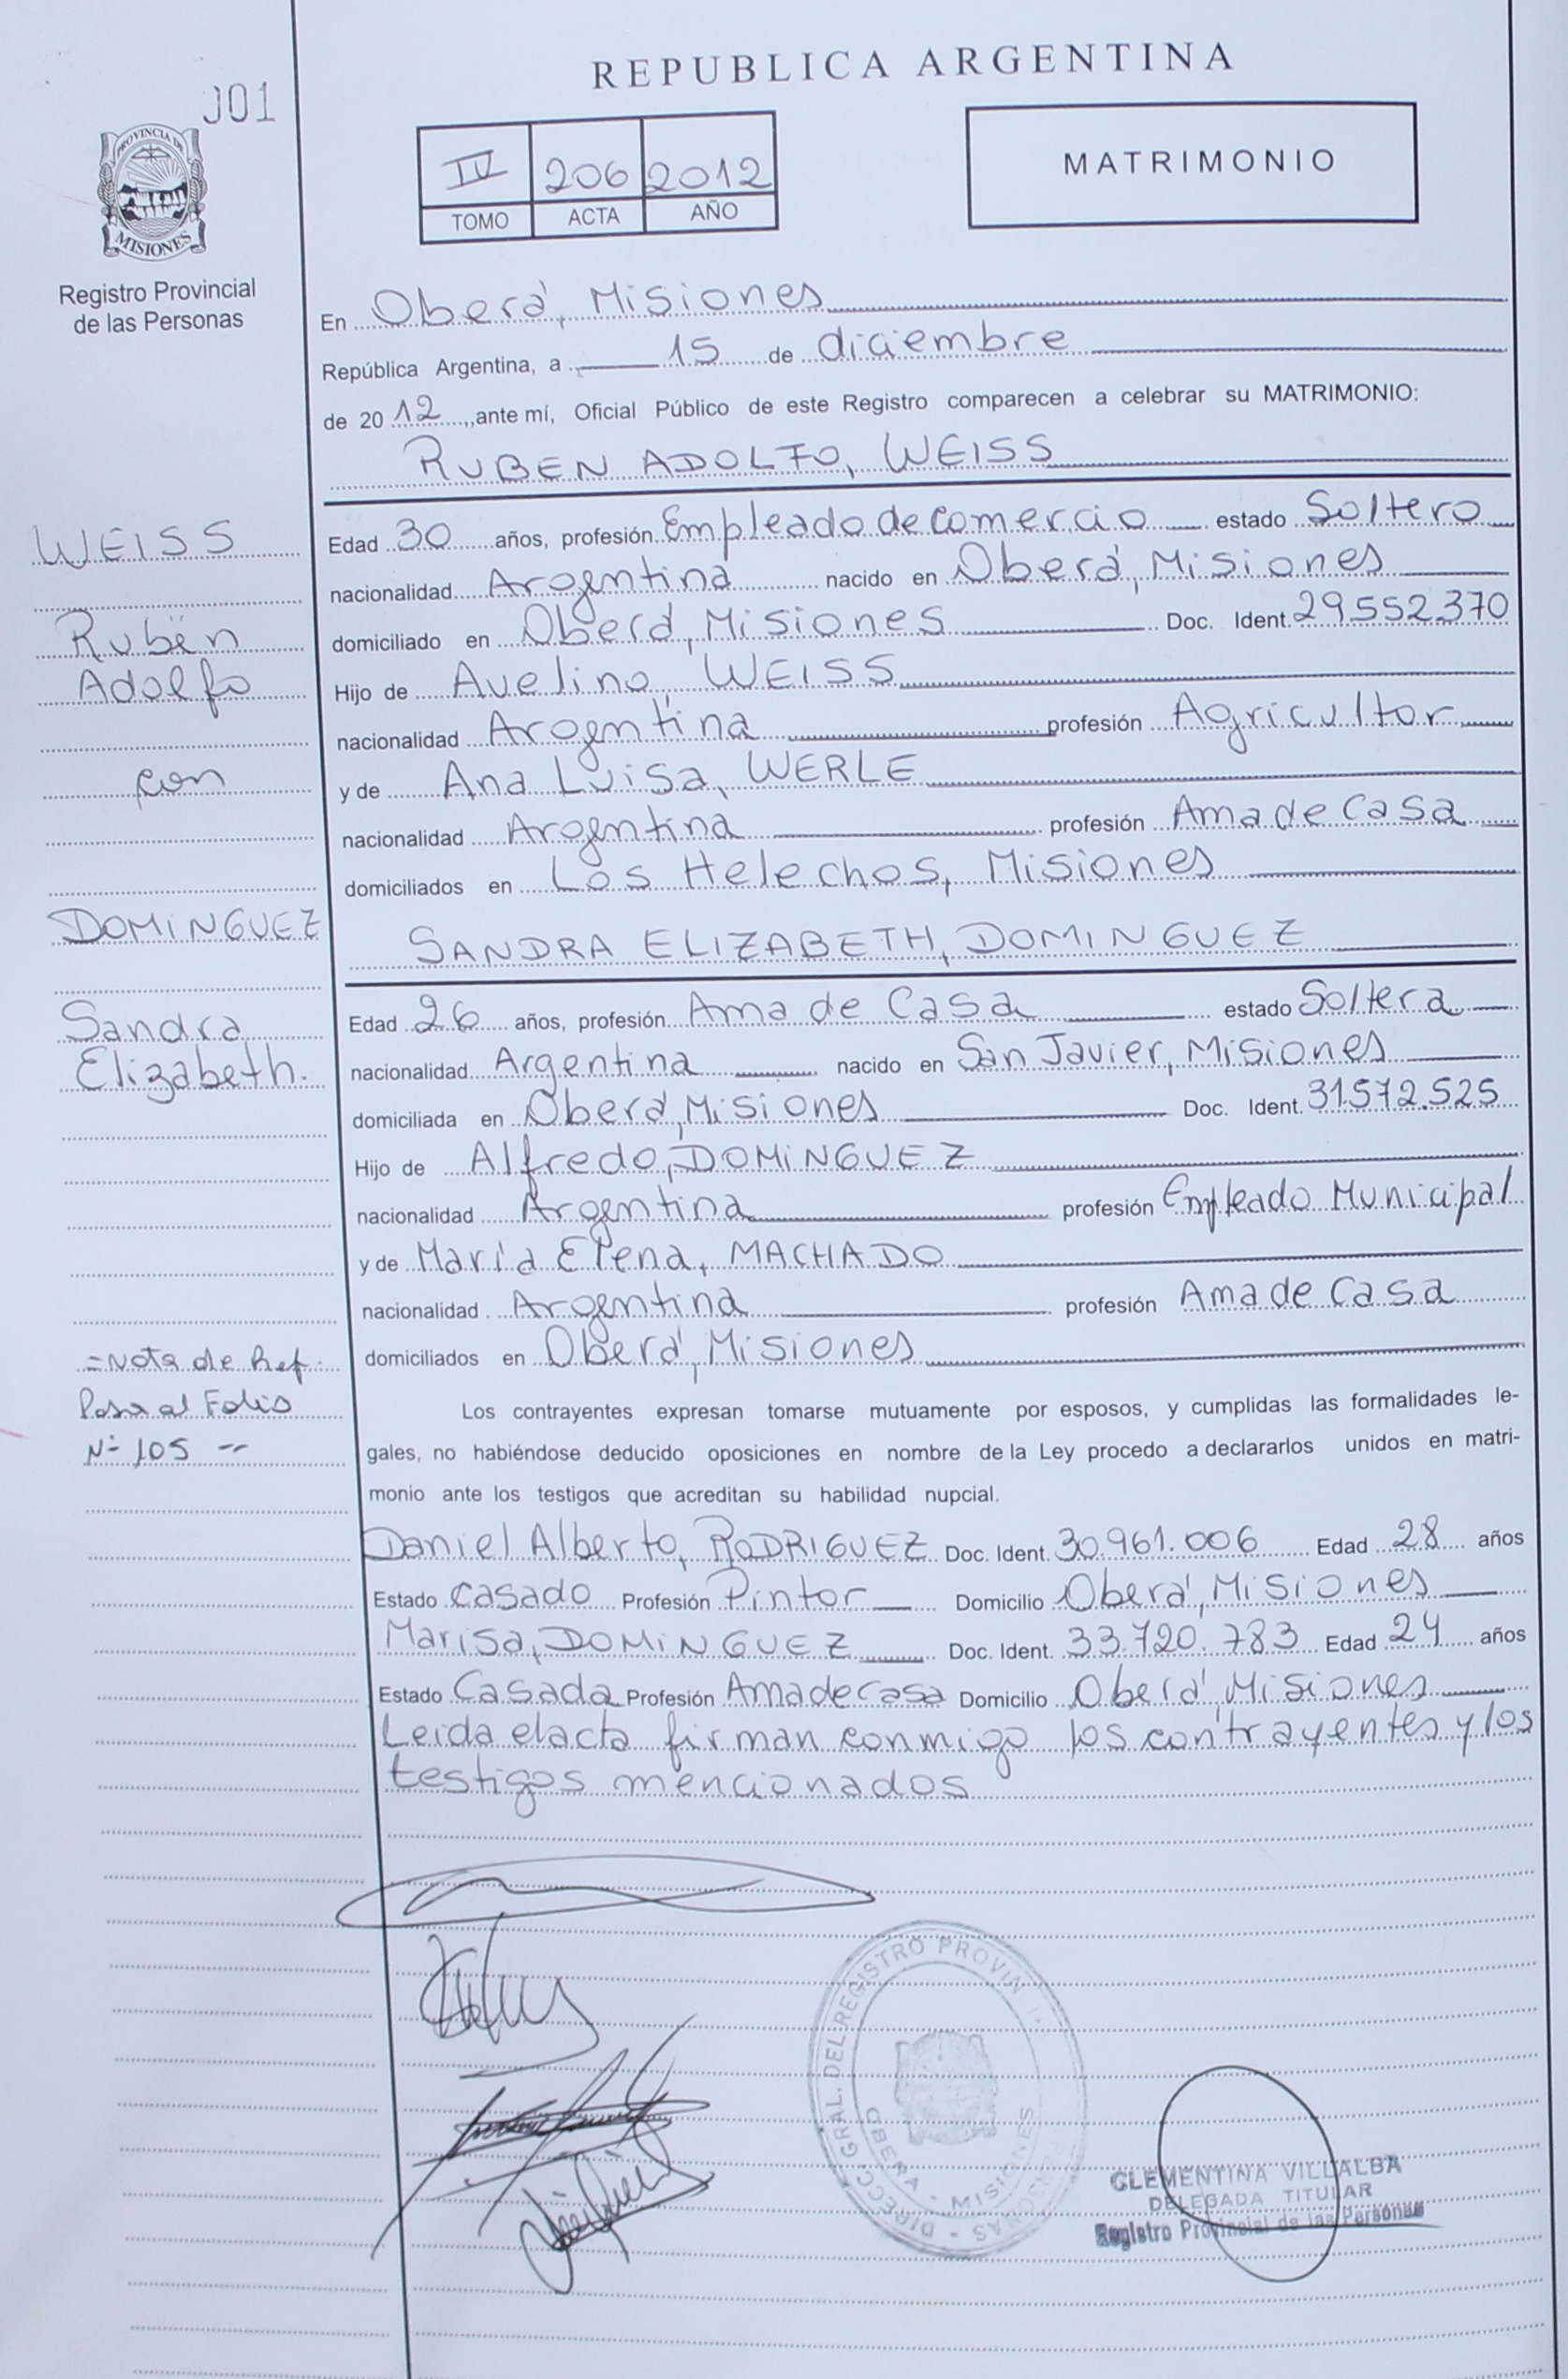 REPUBLICA ARGENTINA
101
PROVINCIA DE
MISIONES
Registro Provincial
de las Personas
IV 206 2012
TOMO ACTA AÑO
MATRIMONIO
En Oberá, Misiones
República Argentina, a 15 de diciembre
de 2012, ante mí, Oficial Público de este Registro comparecen a celebrar su MATRIMONIO:
RUBEN ADOLFO, WEISS
Edad 30 años, profesión Empleado de comercio estado Soltero
nacionalidad Argentina nacido en Oberá, Misiones
domiciliado en Oberá, Misiones Doc. Ident. 29.552.370
Hijo de Avelino, WEISS
nacionalidad Argentina profesión Agricultor
y de Ana Luisa, WERLE
nacionalidad Argentina profesión Ama de Casa
domiciliados en Los Helechos, Misiones
SANDRA ELIZABETH, DOMINGUEZ
Edad 26 años, profesión Ama de Casa estado Soltera
nacionalidad Argentina nacido en San Javier, Misiones
domiciliada en Oberá, Misiones Doc. Ident. 31.572.525
Hijo de Alfredo, DOMINGUEZ
nacionalidad Argentina profesión Empleado Municipal
y de María Elena, MACHADO
nacionalidad Argentina profesión Ama de Casa
domiciliados en Oberá, Misiones
Los contrayentes expresan tomarse mutuamente por esposos, y cumplidas las formalidades le-
gales, no habiéndose deducido oposiciones en nombre de la Ley procedo a declararlos unidos en matri-
monio ante los testigos que acreditan su habilidad nupcial.
Daniel Alberto, RODRIGUEZ Doc. Ident. 30.961.006 Edad 28 años
Estado Casado Profesión Pintor Domicilio Oberá, Misiones
Marisa, DOMINGUEZ Doc. Ident. 33.720.783 Edad 24 años
Estado Casada Profesión Ama de casa Domicilio Oberá, Misiones
Leida el acta firman conmigo los contrayentes y los
testigos mencionados
WEISS
Rubén
Adolfo
con
DOMINGUEZ
Sandra
Elizabeth.
=Nota de Ref.
Pasa al Folio
Nº 105 --
DIRECC. GRAL. DEL REGISTRO PROVIN
OBERA - MISIONES
CLEMENTINA VILLALBA
DELEGADA TITULAR
Registro Provincial de las Personas